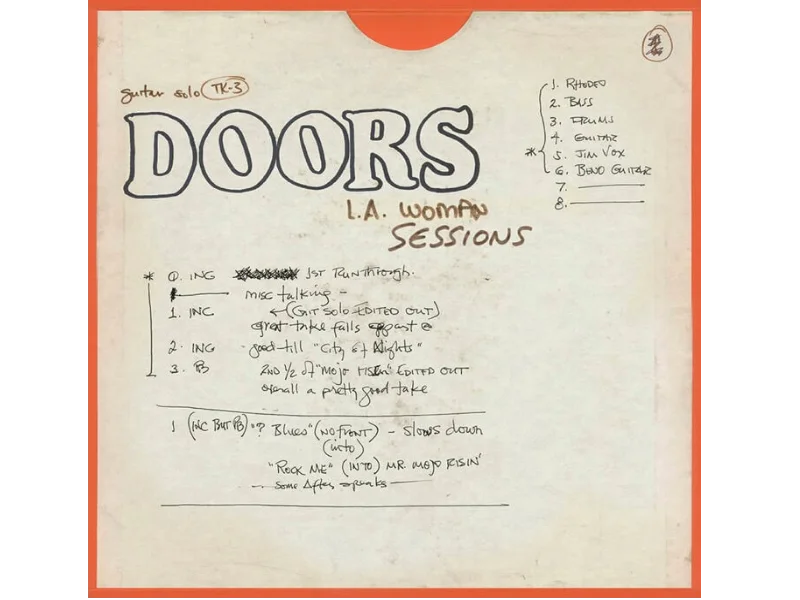 guitar solo TK-3
DOORS
L.A. WOMAN
SESSIONS
1. RHODES
2. BASS
3. DRUMS
4. GUITAR
* 5. JIM VOX
6. BEND GUITAR
7.
8.
* 0. INC 1ST RUNTHrough.
misc talking -
1. INC ←(GIT SOLO EDITED OUT)
great take falls appart @
2. INC - good till "City of Nights"
3. PB 2ND 1/2 of "MOJO RISEN" EDITED OUT
overall a pretty good take
1 (INC BUT PB) "? Blues" (NO FRONT) - SLOWS down
(into)
"ROCK ME" (INTO) MR. MOJO RISIN'
- some After speaks -